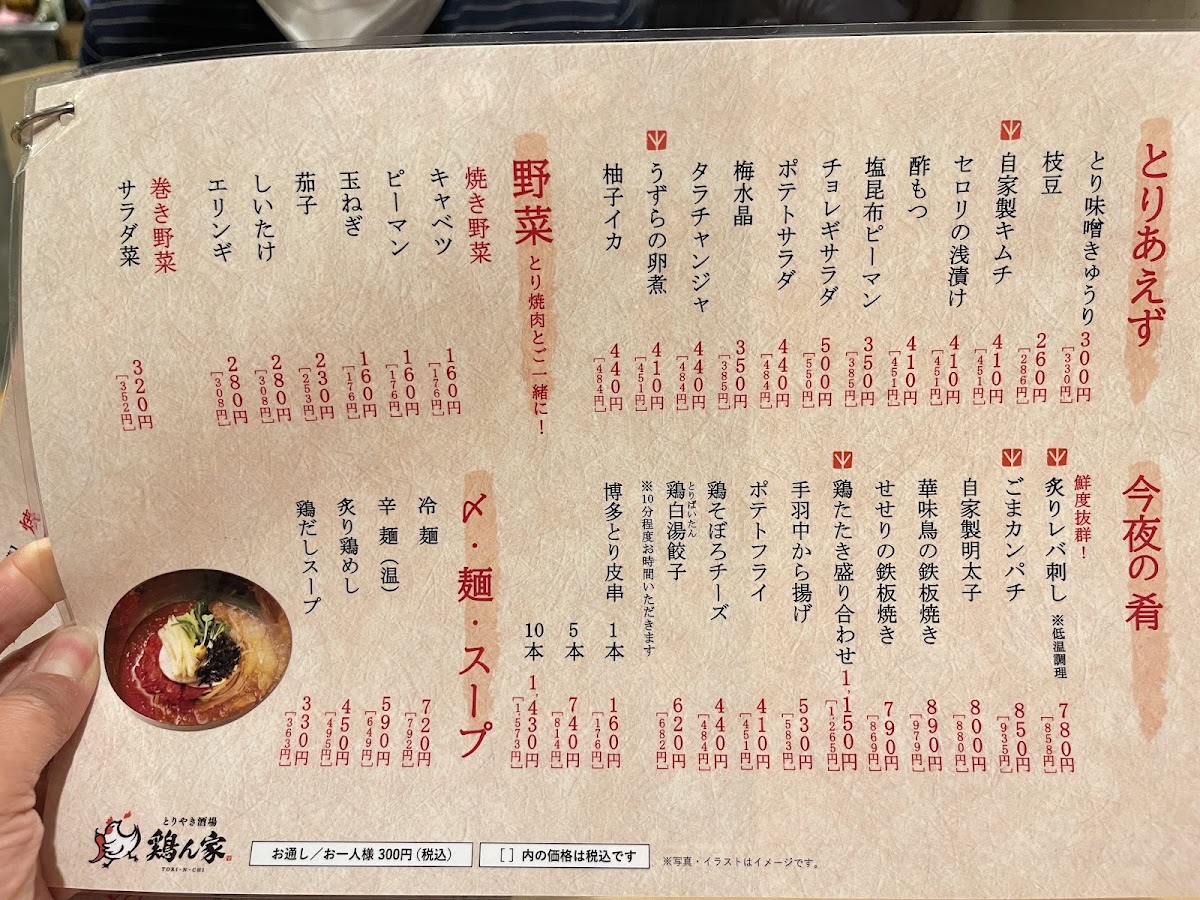 とりあえず
とり味噌きゅうり 300円 [330円]
枝豆 260円 [286円]
自家製キムチ 410円 [451円]
セロリの浅漬け 410円 [451円]
酢もつ 410円 [451円]
塩昆布ピーマン 350円 [385円]
チョレギサラダ 500円 [550円]
ポテトサラダ 440円 [484円]
梅水晶 350円 [385円]
タラチャンジャ 440円 [484円]
うずらの卵煮 410円 [451円]
柚子イカ 440円 [484円]
野菜 とり焼肉とご一緒に!
焼き野菜
キャベツ 160円 [176円]
ピーマン 160円 [176円]
玉ねぎ 160円 [176円]
茄子 230円 [253円]
しいたけ 280円 [308円]
エリンギ 280円 [308円]
巻き野菜
サラダ菜 320円 [352円]
今夜の肴
鮮度抜群!
炙りレバ刺し ※低温調理 780円 [858円]
ごまカンパチ 850円 [935円]
自家製明太子 800円 [880円]
華味鳥の鉄板焼き 890円 [979円]
せせりの鉄板焼き 790円 [869円]
鶏たたき盛り合わせ 1,150円 [1,265円]
手羽中から揚げ 530円 [583円]
ポテトフライ 410円 [451円]
鶏そぼろチーズ 440円 [484円]
とりぱいたん
鶏白湯餃子 620円 [682円]
※10分程度お時間いただきます
博多とり皮串 1本 160円 [176円]
5本 740円 [814円]
10本 1,430円 [1,573円]
〆・麺・スープ
冷麺 720円 [792円]
辛麺(温) 590円 [649円]
炙り鶏めし 450円 [495円]
鶏だしスープ 330円 [363円]
とりやき酒場
鶏ん家
TORI-N-CHI
お通し/お一人様 300円(税込)
[ ]内の価格は税込です
※写真・イラストはイメージです。